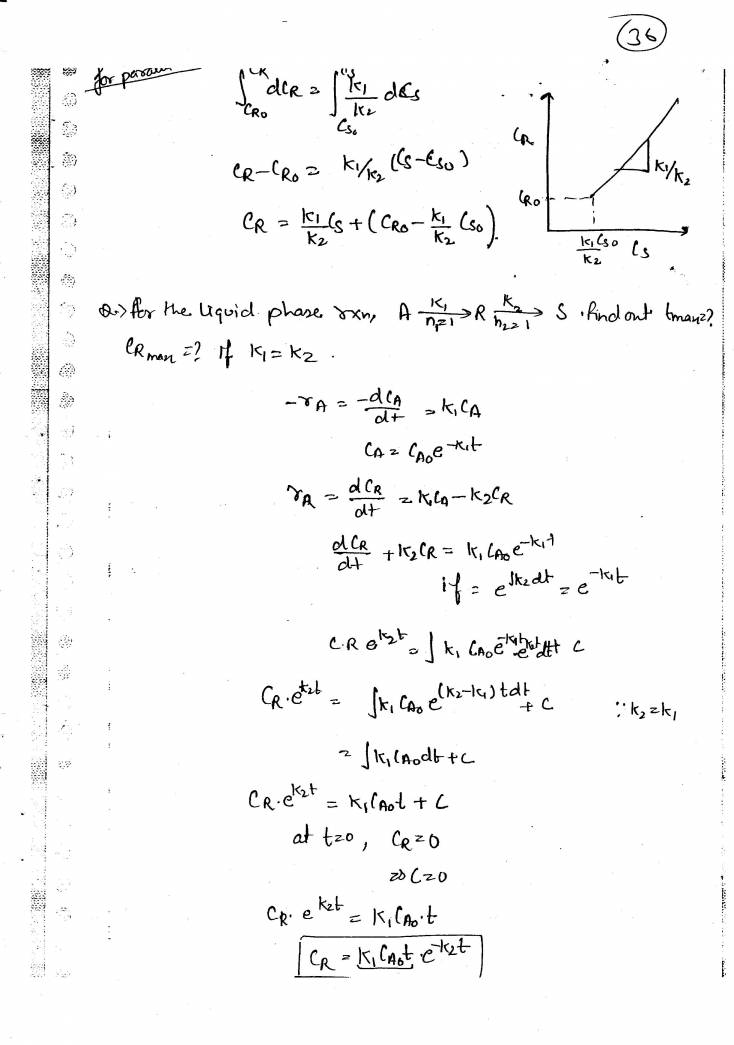 36
for param
∫ CR CR0 dCR = ∫ Cs Cs0 k1/k2 dCs
CR-CR0 = k1/k2 (Cs-Cs0)
CR = k1/k2 Cs + (CR0 - k1/k2 Cs0).
CR
k1/k2
CR0
k1Cs0/k2
Cs
Q.> for the liquid phase rxn, A k1 → n1=1 R k2 → n2=1 S . find out tmax=?
CR max =? if k1 = k2 .
-rA = -dCA/dt = k1CA
CA = CA0e^-k1t
rR = dCR/dt = k1CA - k2CR
dCR/dt + k2CR = k1CA0e^-k1t
if = e^∫k2dt = e^-k1t
C.R e^k2t = ∫ k1 CA0e^-k1t e^k2t dt + C
CR.e^k2t = ∫k1 CA0 e^(k2-k1)t dt + C ∵ k2 = k1
= ∫k1CA0dt + C
CR.e^k2t = k1CA0t + C
at t=0, CR=0
⇒ C=0
CR. e^k2t = k1CA0.t
CR = k1CA0t e^-k2t